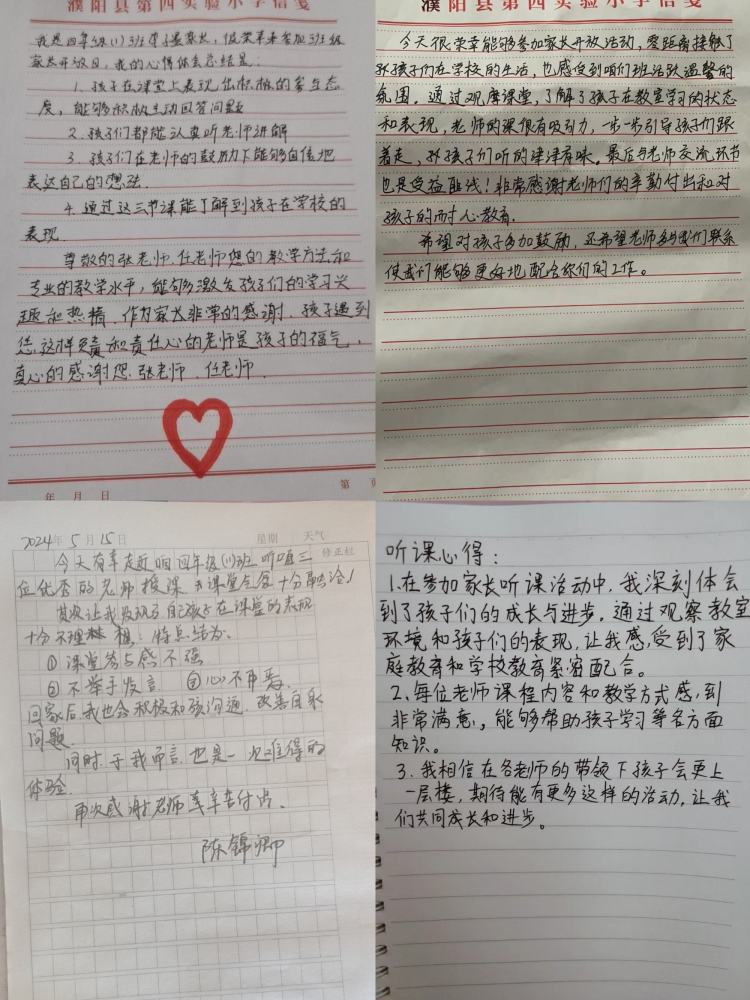 濮阳县第四实验小学信笺
我是四年级(1)班李墨家长，很荣幸来参加班级
家长开放日，我的心得体会总结是：
1. 孩子在课堂上表现出积极的参与态
度，能够积极主动回答问题
2. 孩子们都能认真听老师讲解
3. 孩子们在老师的鼓励力下能够自信地
表达自己的想法.
4. 通过这三节课能了解到孩子在学校的
表现.
尊敬的张老师.任老师您的教学方法和
专业的教学水平，能够激发孩子们的学习兴
趣和热情、作为家长非常的感谢、孩子遇到
您这样负责和责任心的老师是孩子的福气，
真心的感谢您.张老师.任老师.
年 月 日
第 页
濮阳县第四实验小学信笺
今天很荣幸能够参加家长开放活动，零距离接触了
孩子们在学校的生活，也感受到咱们班活跃温馨的
氛围。通过观摩课堂，了解了孩子在教室学习的状态
和表现，老师的课很有吸引力，一步一步引导孩子们跟
着走，孩子们听的津津有味。最后与老师交流环节
也是受益匪浅！非常感谢老师们的辛勤付出和对
孩子的耐心教育.
希望对孩子多加鼓励，还希望老师多与我们联系
使我们能够更好地配合你们的工作。
2024年 5月 15日 星期 天气
修正栏
今天有幸走近咱四年级(1)班 听咱三
位优秀的老师授课 课堂气氛十分
其次让我发现了自己孩子在课堂的表现
十分不理想：特点结为.
① 课堂参与感不强
② 不举手发言 ③
回家后.我也会积极和孩沟通.改善自家
问题.
同时.于我而言.也是一次难得的
体验.
再次感谢老师辛苦付出.
陈锦卿
听课心得：
1.在参加家长听课活动中，我深刻体会
到了孩子们的成长与进步。通过观察教室
环境和孩子们的表现，让我感受到了家
庭教育和学校教育紧密配合。
2.每位老师课程内容和教学方式感到
非常满意，能够帮助孩子学习等各方面
知识。
3.我相信在各老师的带领下孩子会更上
一层楼，期待能有更多这样的活动，让我
们共同成长和进步。